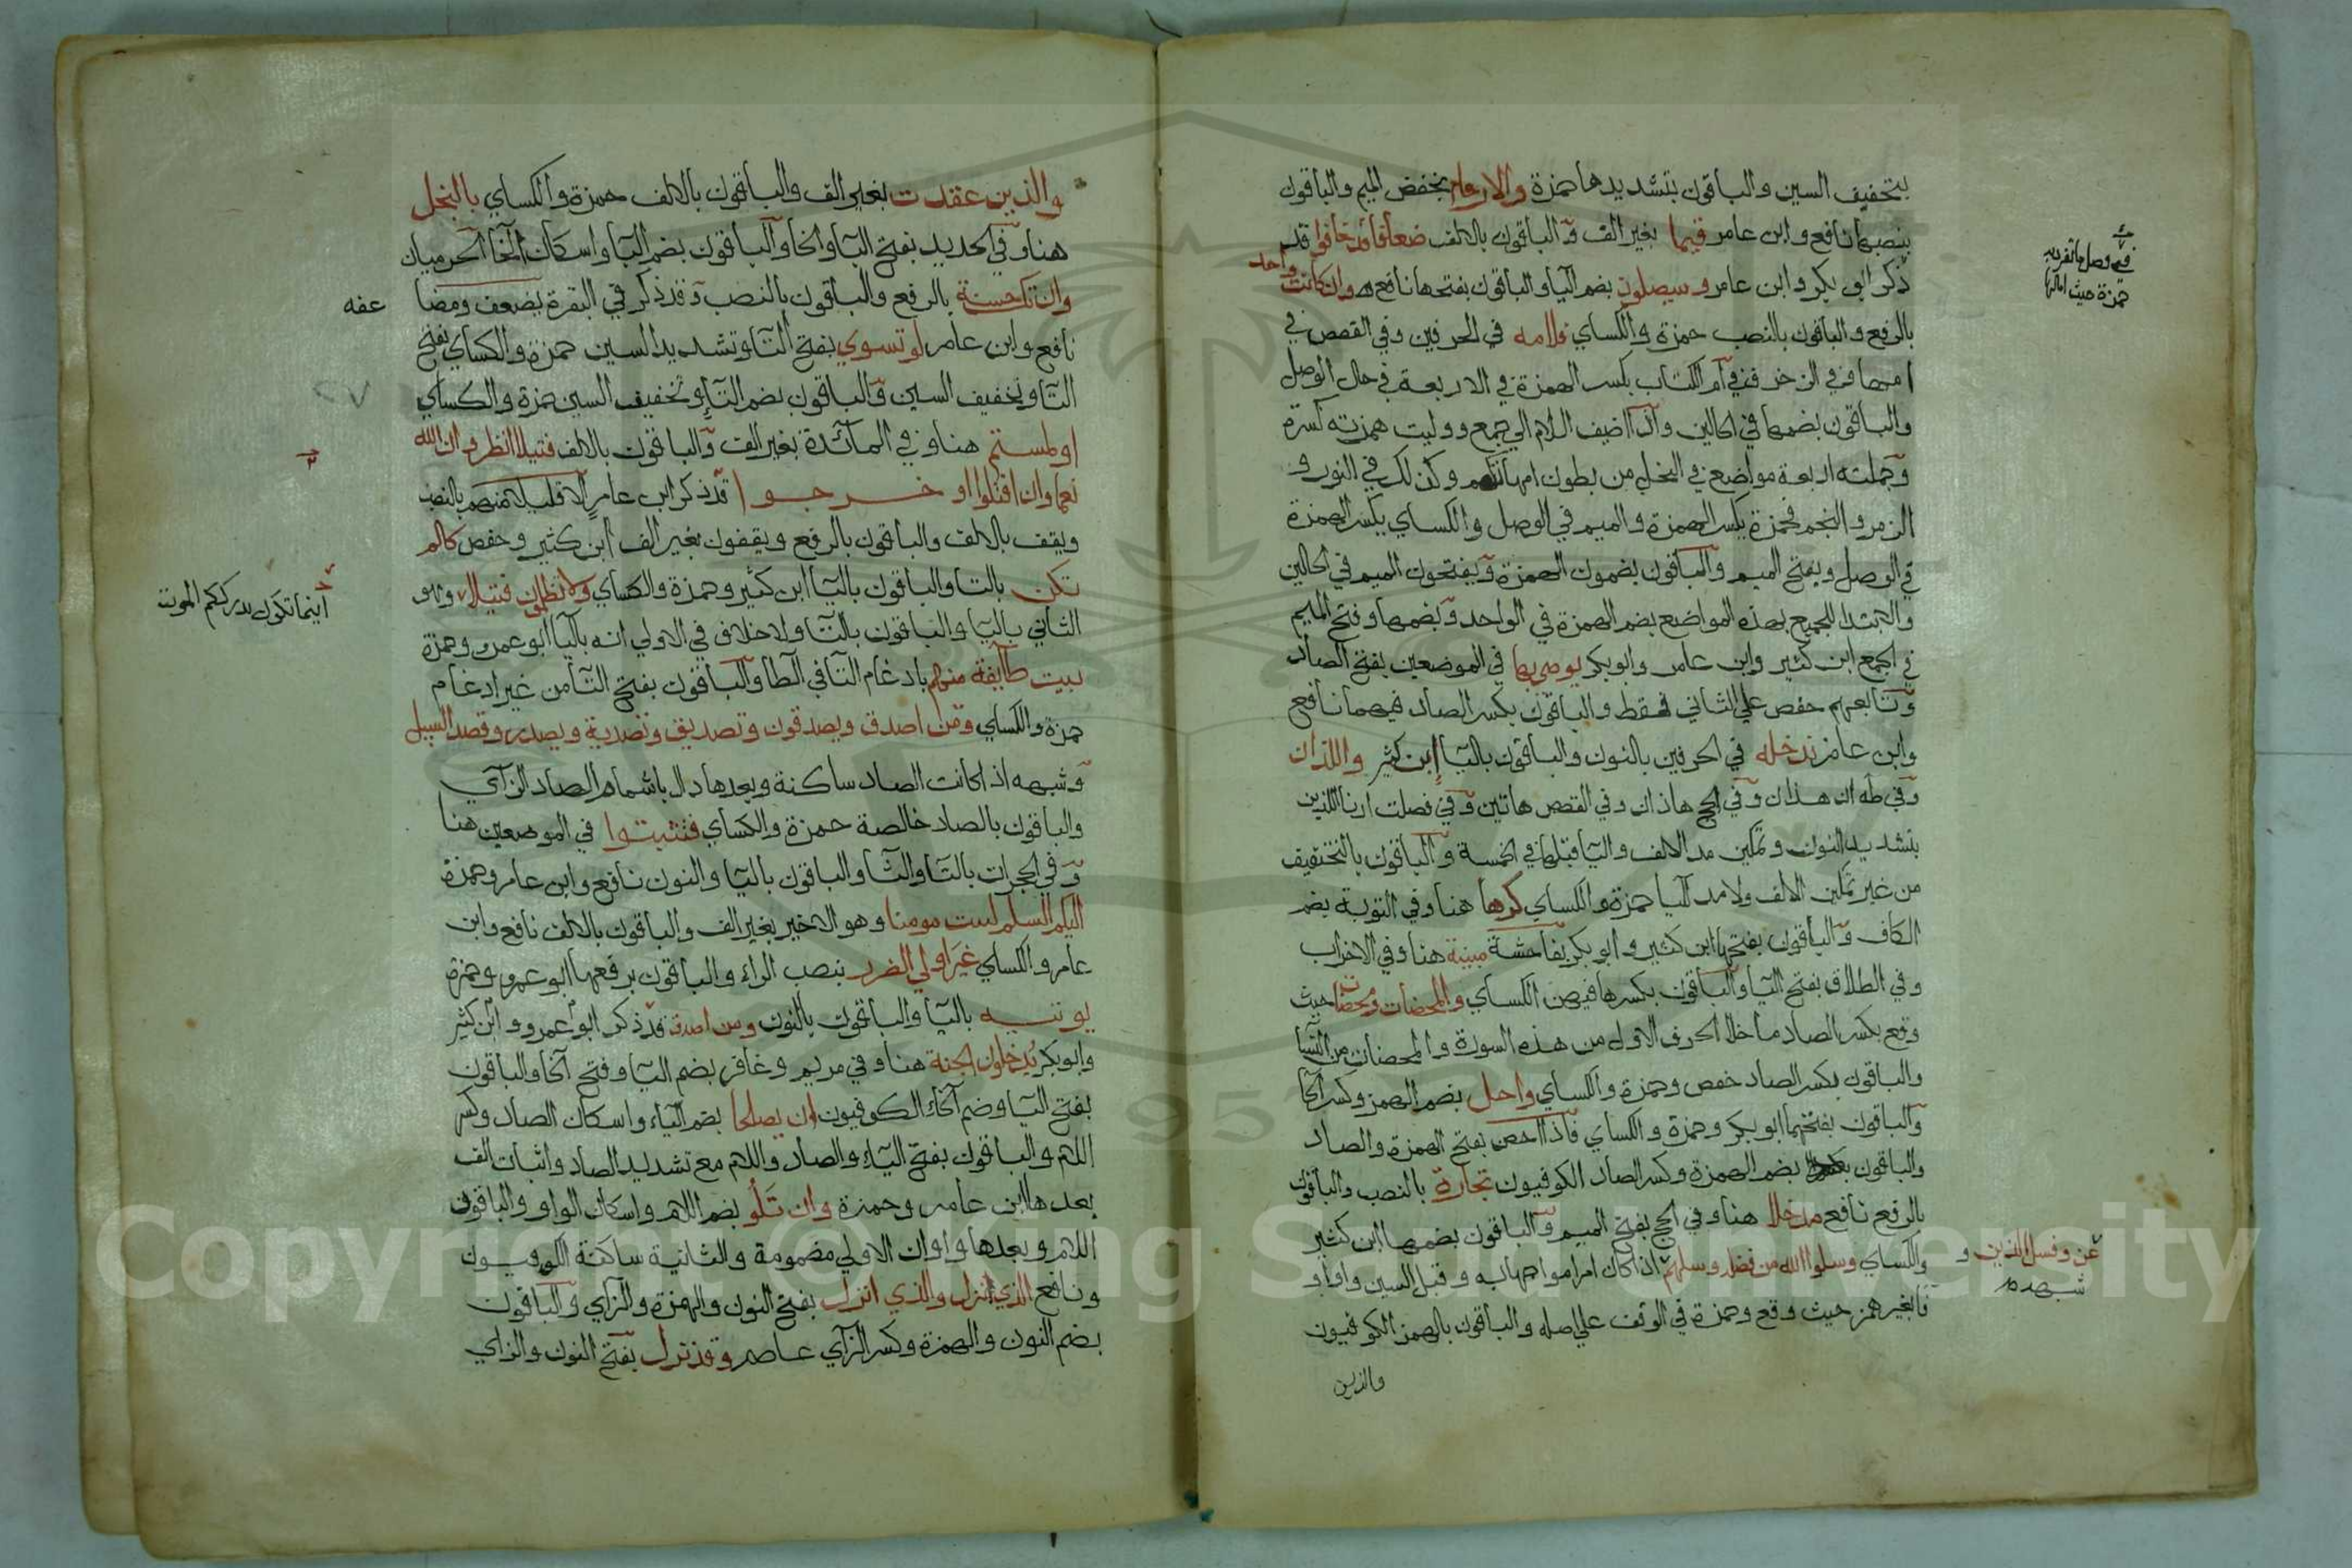 بتخفيف السين والباقون بتشديدها حمزة والارحام بخفض الميم والباقون
بنصبها نافع وابن عامر قيما بغير الف والباقون بالالف ضعافا قد خافوا قد
ذكر ابو بكر وابن عامر وسيصلون بضم اليا والباقون بفتحها نافع وان كانت واحدة
بالرفع والباقون بالنصب حمزة والكساي فلامه في الحرفين وفي القصص في
امها وفي الزخرف في ام الكتاب بكسر الهمزة في الاربعة في حال الوصل
والباقون بضمها في الحالين واذا اضيف اللام الي جمع ووليت همزته كسرة
وجملته اربعة مواضع في النحل من بطون امهاتكم وكذلك في النور و
الزمر والنجم فحمزة يكسر الهمزة والميم في الوصل والكساي يكسر الهمزة
في الوصل ويفتح الميم والباقون يضمون الهمزة ويفتحون الميم في الحالين
والابتدا للجميع بهذه المواضع بضم الهمزة في الواحد وبضمها وفتح الميم
في الجمع ابن كثير وابن عامر وابو بكر يوصي بها في الموضعين بفتح الصاد
وتابعهم حفص علي الثاني فقط والباقون بكسر الصاد فيهما نافع
وابن عامر ندخله في الحرفين بالنون والباقون باليا ابن كثير واللذان
وفي طه ان هذان وفي الحج هاذان وفي القصص هاتين وفي فصلت ارنا اللذين
بتشديد النون وتمكين مد الالف واليا قبلها في الخمسة والباقون بالتخفيف
من غير تمكين الالف ولا مد اليا حمزة والكساي كرها هنا وفي التوبة بضم
الكاف والباقون بفتحها ابن كثير وابو بكر بفاحشة مبينة هنا وفي الاحزاب
وفي الطلاق بفتح اليا والباقون بكسرها فيهن الكساي والمحصنات ومحصنات حيث
وقع بكسر الصاد ما خلا الحرف الاول من هذه السورة والمحصنات من النسا
والباقون بكسر الصاد حفص وحمزة والكساي واحل بضم الهمز وكسر الحا
والباقون بفتحهما ابو بكر وحمزة والكساي فاذا احصن بفتح الهمزة والصاد
والباقون بضم الهمزة وكسر الصاد الكوفيون تجارة بالنصب والباقون
بالرفع نافع مدخلا هنا وفي الحج بفتح الميم والباقون بضمها ابن كثير
والكساي وسلوا الله من فضله وسلهم اذا كان امرا مواجها به وقبل السين واو او
فا بغير همز حيث وقع وحمزة في الوقف علي اصله والباقون بالهمز الكوفيون
والذين
حمزة حيث امالها
عن وفسل الذين و
شبهه
والذين عقدت بغير الف والباقون بالالف حمزة والكساي بالبخل
هنا وفي الحديد بفتح البا والخا والباقون بضم البا واسكان الخا الحرميان
وان تك حسنة بالرفع والباقون بالنصب وقد ذكر في البقرة يضعف ومضا
عفه
نافع وابن عامر لو تسوي بفتح التا وتشديد السين حمزة والكساي بفتح
التا وتخفيف السين والباقون بضم التا وتخفيف السين حمزة والكساي
او لمستم هنا وفي المائدة بغير الف والباقون بالالف فتيلا انظر وان الله
نعما وان اقتلوا او خرجوا قد ذكر ابن عامر الا قليلا منهم بالنصب
ويقف بالالف والباقون بالرفع ويقفون بغير الف ابن كثير وحفص كالم
تكن بالتا والباقون باليا ابن كثير وحمزة والكساي ولا تظلمون فتيلا وهو
اينما تكونو يدرككم الموت
الثاني باليا والباقون بالتا ولا خلاف في الاولي انه باليا ابو عمرو وحمزة
بيت طايفة منهم بادغام التا في الطا والباقون بفتح التا من غير ادغام
حمزة والكساي ومن اصدق ويصدقون وتصديق وتصدية ويصدر وقصد السبيل
وشبهه اذا كانت الصاد ساكنة وبعدها دال باشمام الصاد الزاي
والباقون بالصاد خالصة حمزة والكساي فتثبتوا في الموضعين هنا
وفي الحجرات بالتا والثا والباقون باليا والنون نافع وابن عامر وحمزة
اليكم السلم لست مومنا وهو الاخير بغير الف والباقون بالالف نافع وابن
عامر والكساي غير اولي الضرر بنصب الراء والباقون برفعها ابو عمرو وحمزة
يوتيه باليا والباقون بالنون ومن اصدق قد ذكر ابو عمرو وابن كثير
وابو بكر يدخلون الجنة هنا وفي مريم وغافر بضم اليا وفتح الخا والباقون
بفتح اليا وضم الخاء الكوفيون ان يصلحا بضم الياء واسكان الصاد وكسر
اللام والباقون بفتح الياء والصاد واللام مع تشديد الصاد واثبات الف
بعدها ابن عامر وحمزة وان تلو بضم اللام واسكان الواو والباقون
اللام وبعدها واوان الاولي مضمومة والثانية ساكنة الكوفيون
ونافع الذي نزل والذي انزل بفتح النون والهمزة والزاي والباقون
بضم النون والهمزة وكسر الزاي عاصم وقد نزل بفتح النون والزاي
Copyright © King Saud University